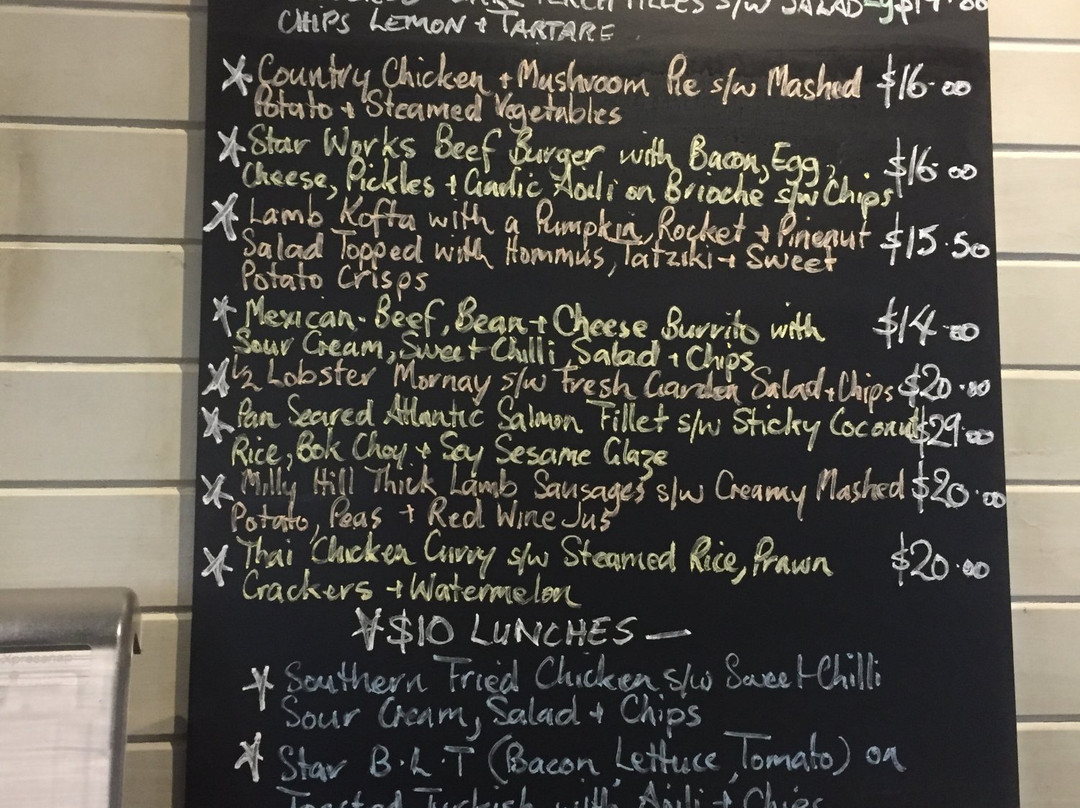 FILLES S/W SALAD
CHIPS LEMON + TARTARE
Country Chicken + Mushroom Pie s/w Mashed $16.00
Potato + Steamed Vegetables
Star Works Beef Burger with Bacon, Egg, $16.00
Cheese, Pickles + Garlic Aoili on Brioche s/w Chips
Lamb Kofta with a Pumpkin, Rocket + Pinenut $15.50
Salad Topped with Hommus, Tatziki + Sweet
Potato Crisps
Mexican - Beef, Bean + Cheese Burrito with $14.00
Sour Cream, Sweet Chilli, Salad + Chips
1/2 Lobster Mornay s/w Fresh Garden Salad + Chips $20.00
Pan Seared Atlantic Salmon Fillet s/w Sticky Coconut $29.00
Rice, Bok Choy + Soy Sesame Glaze
Milly Hill Thick Lamb Sausages s/w Creamy Mashed $20.00
Potato, Peas + Red Wine Jus
Thai Chicken Curry s/w Steamed Rice, Prawn $20.00
Crackers + Watermelon
$10 LUNCHES —
Southern Fried Chicken s/w Sweet Chilli
Sour Cream, Salad + Chips
Star B.L.T (Bacon, Lettuce, Tomato) on
Toasted Turkish with Aoili + Chips